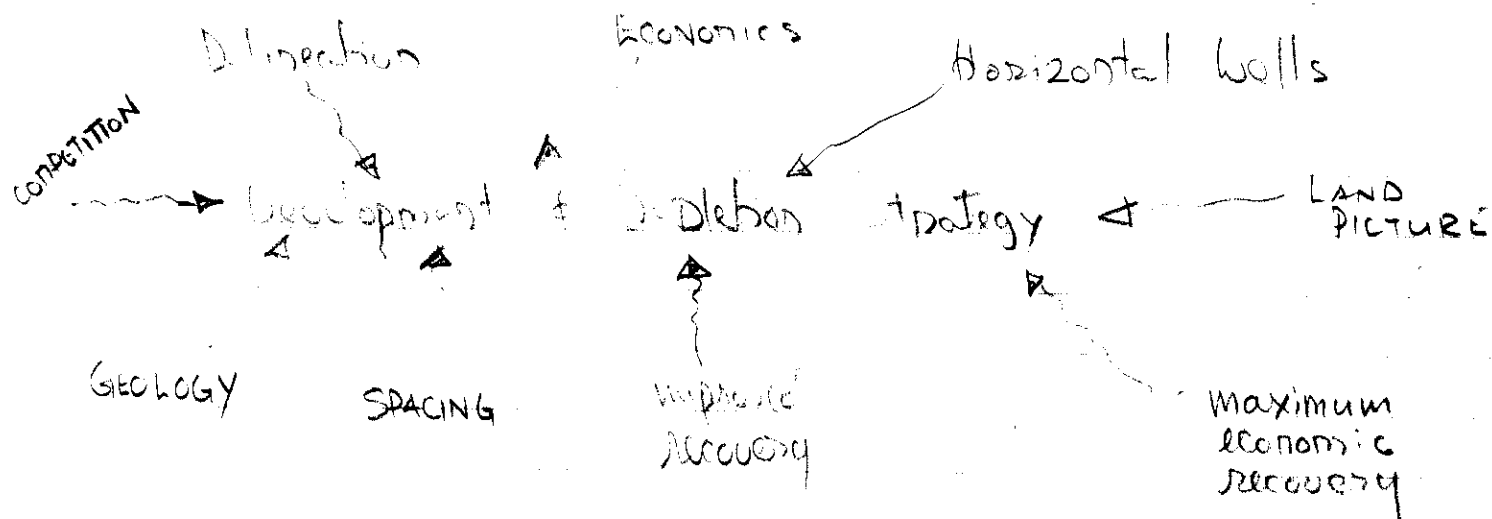 Delineation
ECONOMICS
Horizontal Wells
COMPETITION
Development & Depletion Strategy
LAND
PICTURE
GEOLOGY
SPACING
improved
recovery
maximum
economic
recovery